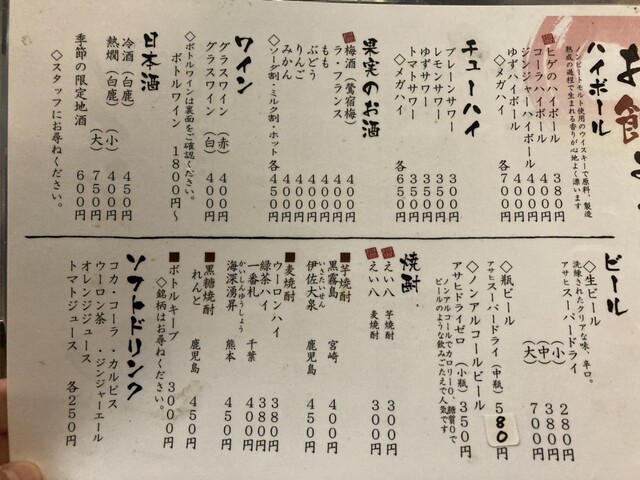 ハイボール
ノンピートモルト使用のウイスキーで原料、製造
熟成の過程で生まれる香りが心地よく漂います
ヒゲのハイボール 380円
コーラハイボール 400円
ジンジャーハイボール 400円
ゆずハイボール 400円
◇メガハイ 各700円
チューハイ
プレーンサワー 300円
レモンサワー 350円
ゆずサワー 350円
トマトサワー 350円
◇メガハイ 各650円
果実のお酒
梅酒(鶯宿梅) 400円
ラ・フランス 400円
もも 400円
ぶどう 400円
りんご 400円
みかん 400円
◇ソーダ割・ミルク割・ホット 各450円
ワイン
グラスワイン (赤) 400円
グラスワイン (白) 400円
◇ボトルワインは裏面をご確認ください。
ボトルワイン 1800円〜
日本酒
冷酒(白鹿) 450円
熱燗(白鹿) (小) 400円
(大) 750円
季節の限定地酒 600円
◇スタッフにお尋ねください。
ビール
◇生ビール
洗練されたクリアな味、辛口。
アサヒスーパードライ
小 280円
中 380円
大 700円
◇瓶ビール
アサヒスーパードライ (中瓶) 580円
◇ノンアルコールビール
アサヒドライゼロ (小瓶) 350円
ノンアルコールでカロリー0、糖質0で
ビールのような飲みごたえで人気です
焼酎
えい八 芋焼酎 300円
えい八 麦焼酎 300円
■芋焼酎
黒霧島 宮崎 400円
いさたいせん
伊佐大泉 鹿児島 450円
■麦焼酎
ウーロンハイ 380円
緑茶ハイ 380円
一番札 千葉 400円
かいしんゆうしょう
海深湧昇 熊本 450円
■黒糖焼酎
れんと 鹿児島 450円
■ボトルキープ 3000円
◇銘柄はお尋ねください。
ソフトドリンク
コカ・コーラ ・カルピス
ウーロン茶 ・ジンジャーエール
オレンジジュース
トマトジュース 各250円